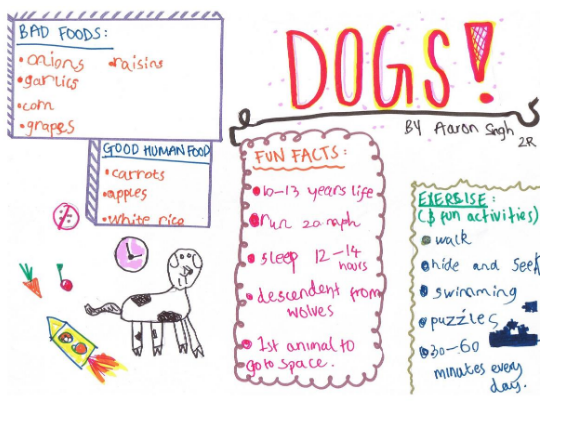 BAD FOODS:
• onions • raisins
• garlics
• corn
• grapes
DOGS!
BY Aaron Singh
2R
GOOD HUMAN FOOD
• carrots
• apples
• white rice
FUN FACTS:
• 10-13 years life
• run 20 mph
• sleep 12-14
hours
• descendent from
wolves
• 1st animal to
go to space.
EXERSISE:
(& fun activities)
• walk
• hide and seek
• swimming
• puzzles
• 30-60
minutes every
day.